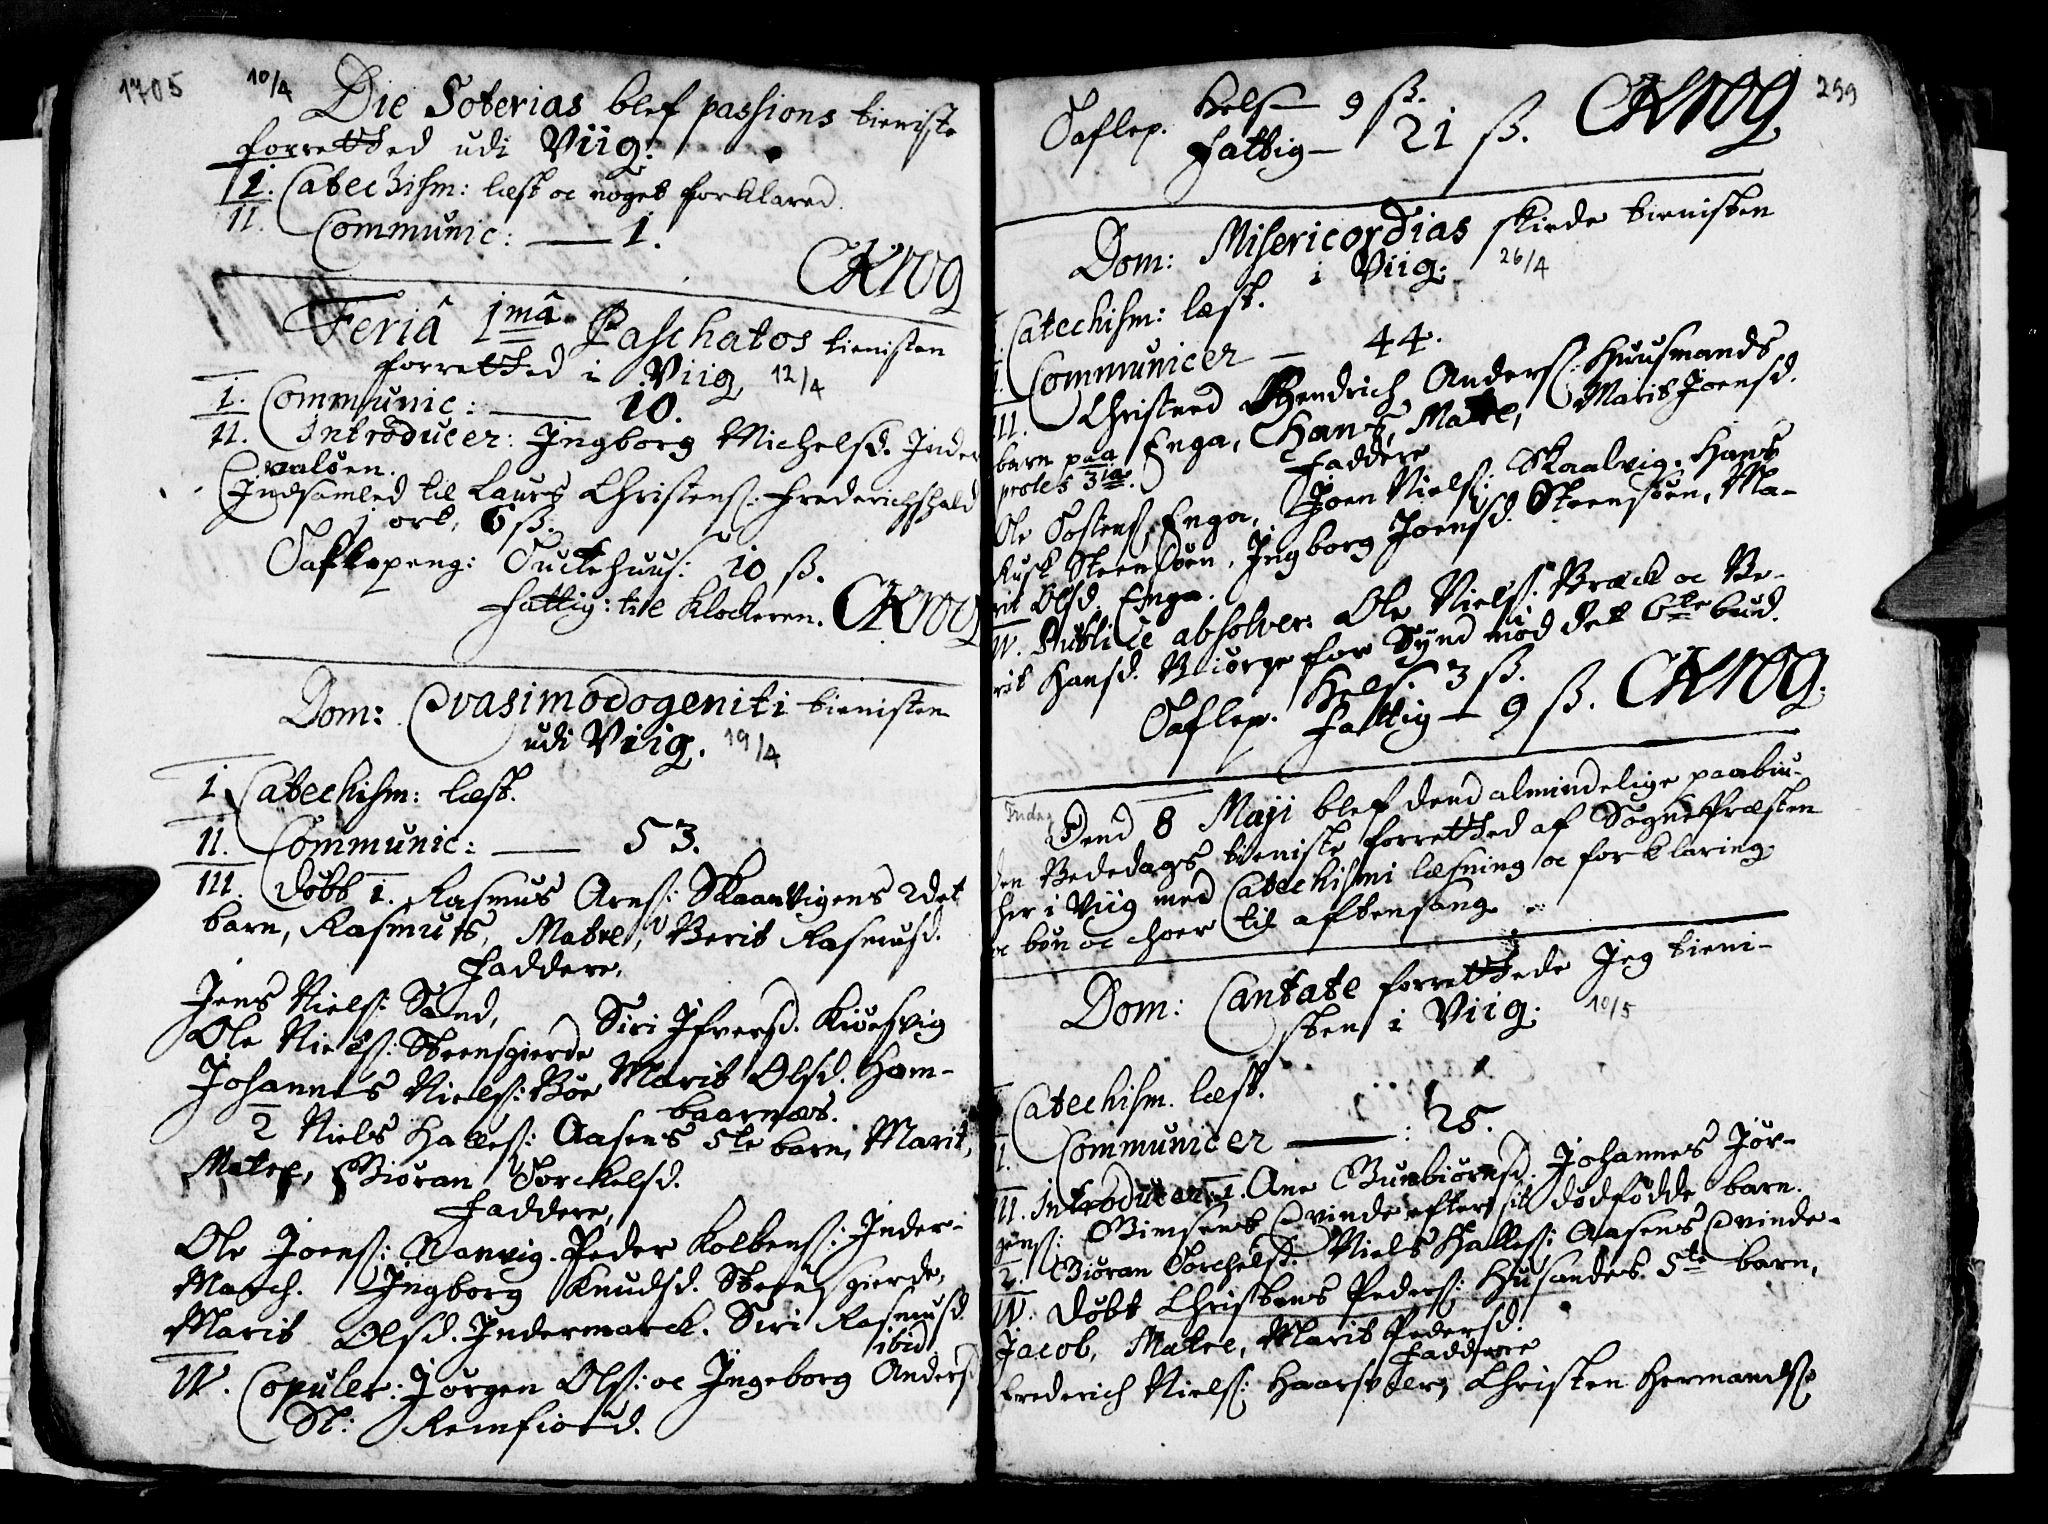 1705
10/4
Die Soterias blef passions tieniste
forretted udi Viig.
I. Catechism: læst oc noget forklared.
II. Communic: — 1.
CKrog
Feriâ 1mâ Paschatos tienisten
forretted i Viig 12/4
I. Communic: — 10.
II. Introducer: Ingborg Michelsd. Inder
valøen.
Indsamled til Laurs Christens: Frederichshald
j ort, 6 ß.
Taflepeng: Tuctehuus: 10 ß.
fattig: til Klockeren. CKrog
Dom: Qvasimodogeniti tienisten
udi Viig. 19/4
I. Catechism: læst.
II. Communic: — 53.
III. døbt 1. Rasmus Arns: Skaanvigens 2det
barn, Rasmus, Matre, Berit Rasmusd.
Faddere,
Jens Niels: Sand, Siri Ifversd. Kiøesvig
Ole Niels: Steensgierde
Johannes Niels: Böe Marit Olsd. Ham-
baarnæs.
2 Niels Halles: Aasens 5te barn, Marit,
Matre, Giøran Torckelsd.
Faddere,
Ole Joens: Aanvig. Peder Kolbens: Inder-
March. Ingborg Knudsd. Steensgierde,
Marit Olsd. Indermarck. Siri Rasmusd
ibid
IV. Copuler: Jørgen Ols: oc Ingeborg Anders
St: Remfiord.
299
Taflep. Hels — 9 ß.
Fattig — 21 ß. CKrog
Dom: Misericordias skiede tienisten
i Viig. 26/4
Catechism: læst.
Communicer — 44.
III. Christned Hendrich Anders: Huusmands
barn paa Enga, Hans, Matre, Marit Joensd.
protes 3ia. Faddere
Ole Tostens Enga, Joen Niels: Skaalvig. Hans
Kusk Steensöen, Ingborg Joensd. Steensöen, Ma-
rit Olsd. Enga.
IV. Publice absolver: Ole Niels: Bræck oc Be-
rit Hansd. Biörge for Synd mod det 6te bud.
Taflep. Hels. 3 ß.
Fattig — 9 ß. CKrog.
Dend 8 Maji blef dend almindelige paabiu-
den Bededags tieniste forretted af SognePræsten
her i Viig med Catechismi læsning oc forklaring
oc bön oc choer til aftensang.
Dom: Cantate forrettede Jeg tieni-
sten i Viig. 10/5
Catechism. læst.
Communicer — 25.
III. Introducer: 1. Ane Gunbiörnsd. Johannes Jör-
gens: Gimsens Qvinde efter sit dödfödde barn.
2. Giöran Torchelsd. Niels Halles: Aasens Qvinde.
IV. Döbt Christens Peders: Husandes 5te barn,
Jacob, Matre, Marit Pedersd.
Faddere
Frederich Niels: Haarsvær, Christen Hermands: